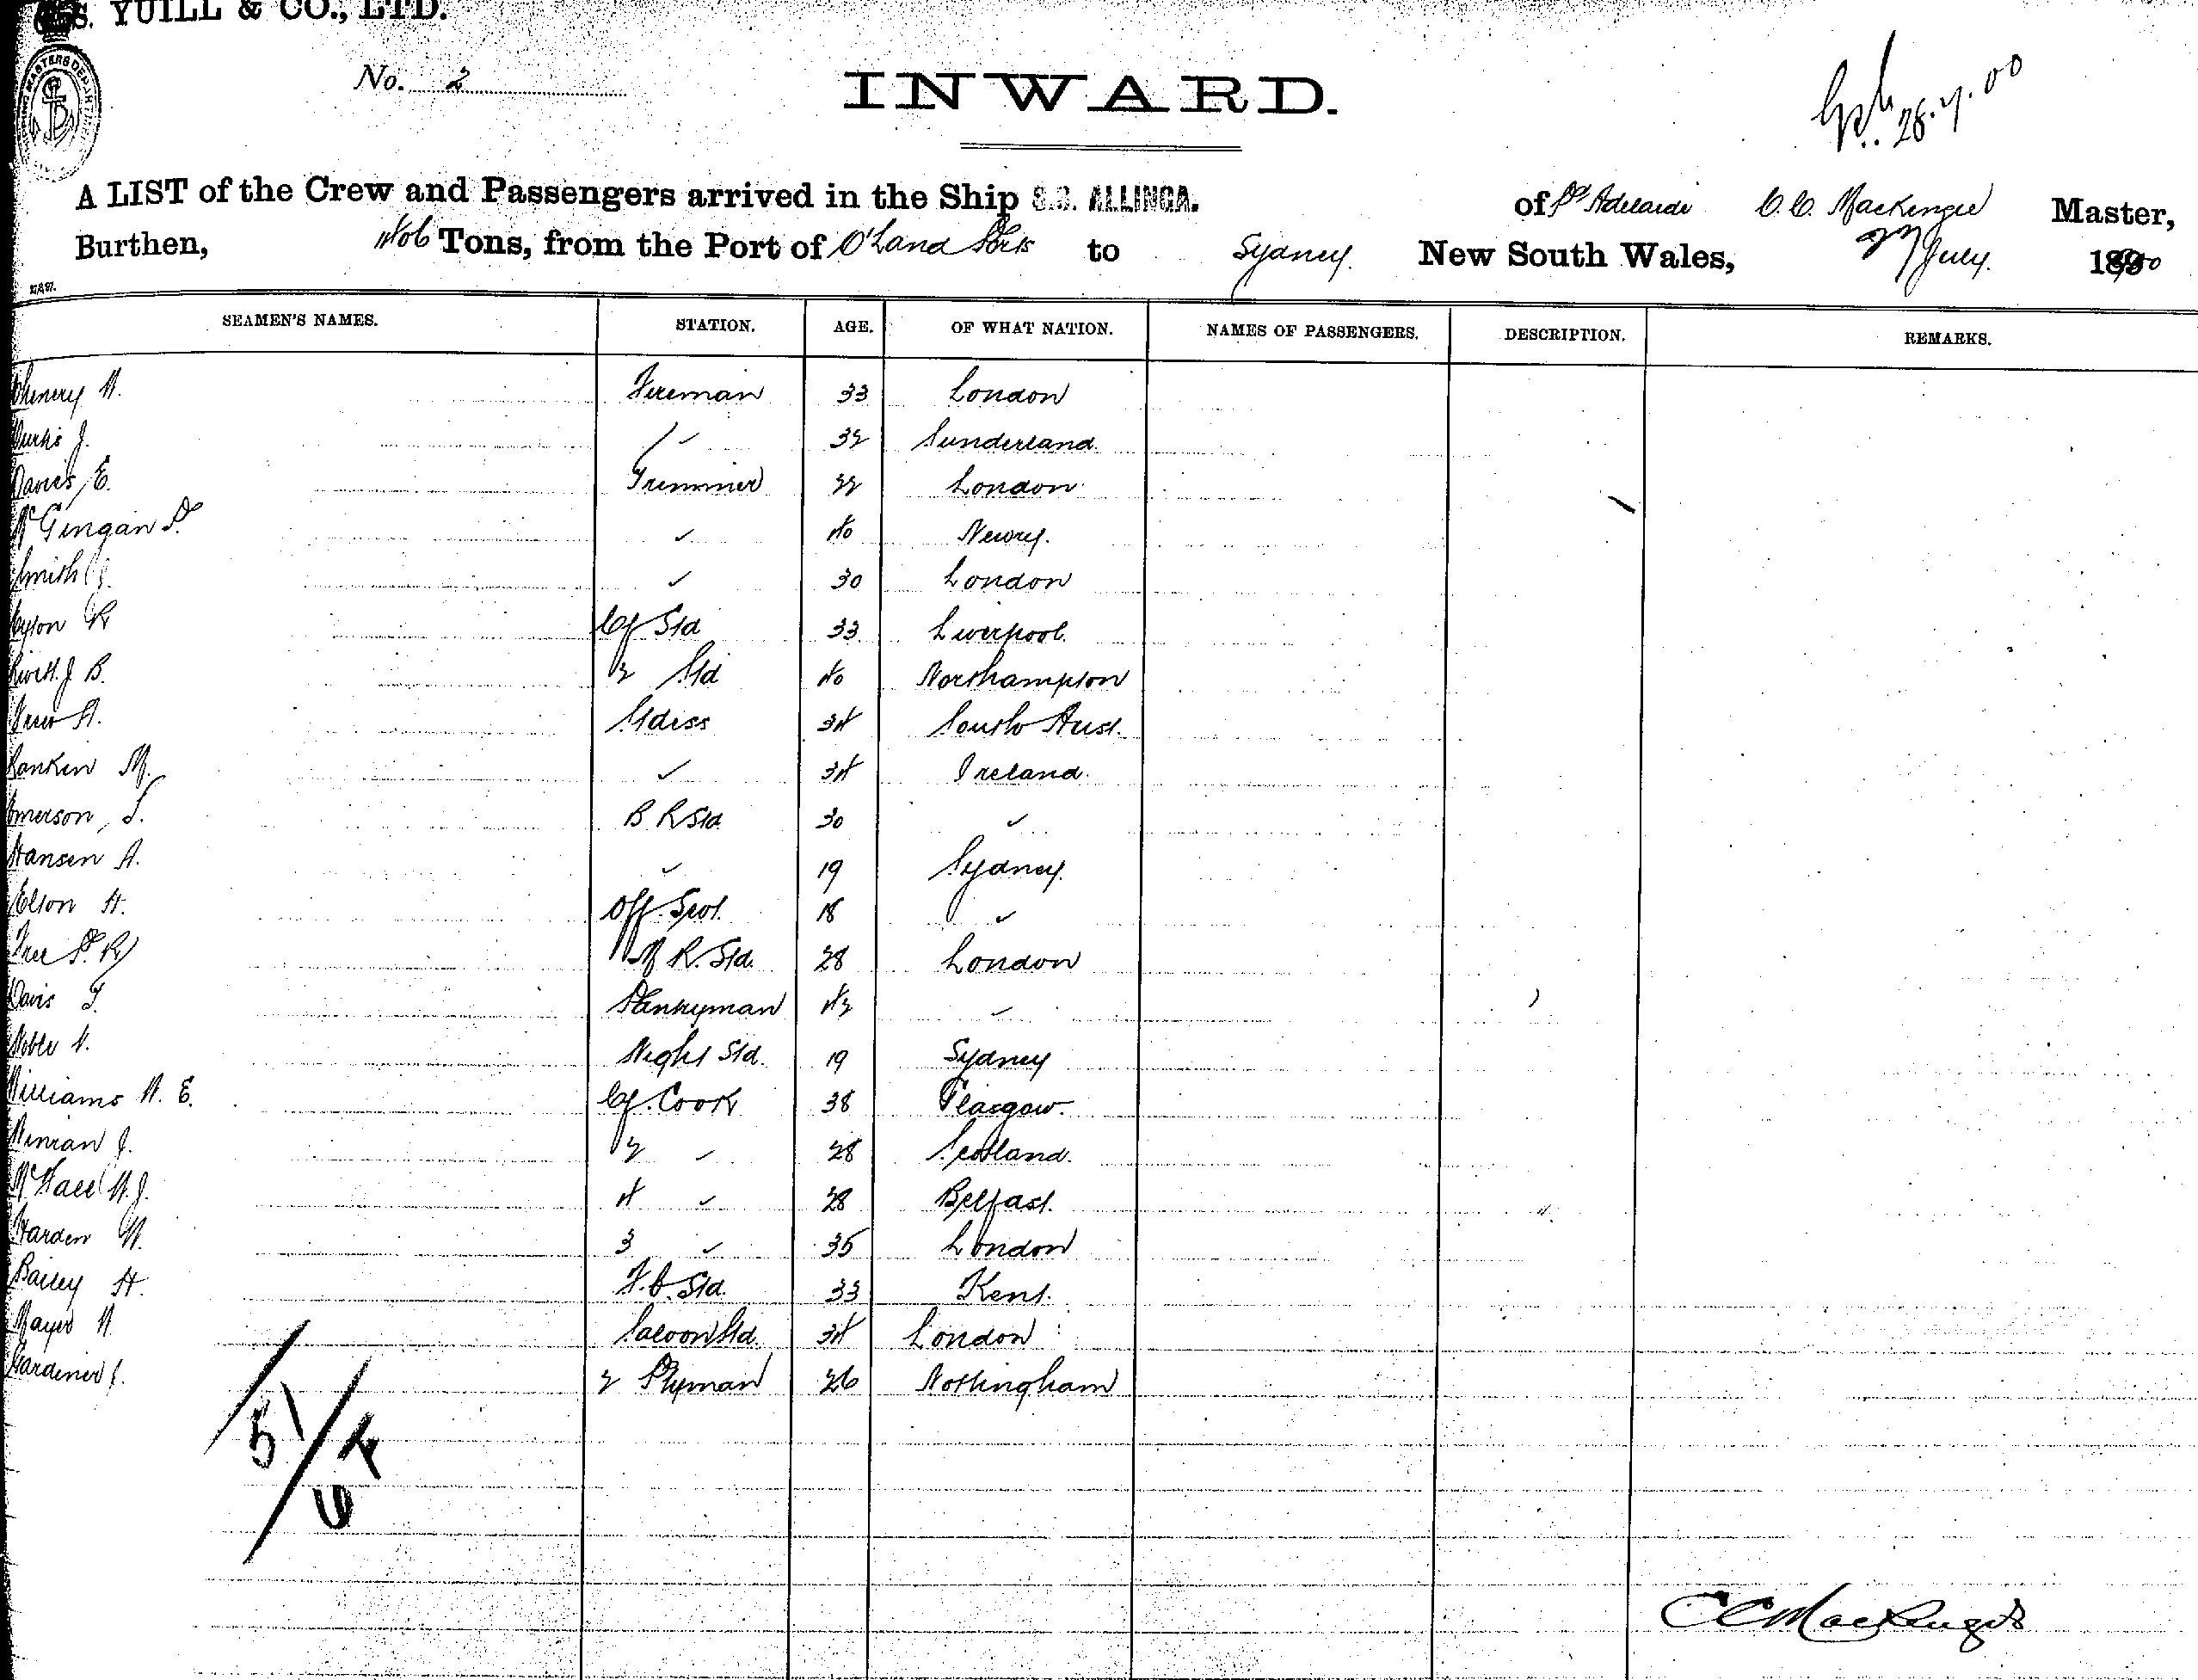 S. YUILL & CO., LTD.
No. 2
INWARD.
28.7.00
A LIST of the Crew and Passengers arrived in the Ship S.S. ALLINGA. of Pt Adelaide C. C. Mackenzie Master,
Burthen, Tons, from the Port of Q'Land Ports to Sydney. New South Wales, 27 July. 1900
SEAMEN'S NAMES. STATION. AGE. OF WHAT NATION. NAMES OF PASSENGERS. DESCRIPTION. REMARKS.
Chenery W. Fireman 33 London
Curtis J. 32 Sunderland.
Davies, E. Trimmer 22 London
McGingan P. ✓ 40 Newry.
Smith J. ✓ 30 London
R Cf Std 33 Liverpool.
J B. 2 Std 40 Northampton
A. Stdess 34 South Aust.
Rankin M. ✓ 34 Ireland.
Emerson, S. B R Std 30 ✓
Hansen A. ✓ 19 Sydney.
Elson H. Off. Svt. 18 ✓
Free P. R M R. Std. 28 London
Davis T. Pantryman 42 ✓
Noble W. Night Std. 19 Sydney
Williams W. E. Cf. Cook 38 Glasgow.
Ninian J. 2 ✓ 28 Scotland.
McHale W. J. 4 ✓ 28 Belfast.
Harden W. 3 ✓ 35 London
Bailey H. F.C. Std. 33 Kent.
Mayer W. Saloon Std. 34 London
Gardiner J. 2 Ptyman 26 Nottingham
51
64
C C Mackenzie